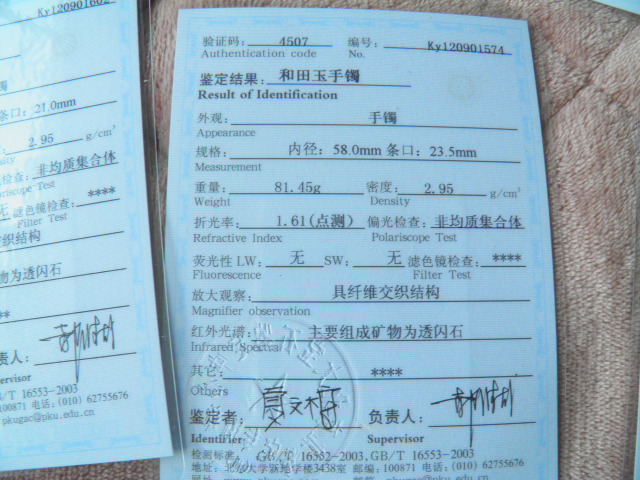 Ky120901602
条口: 21.0mm
2.95 g/cm³
非均质集合体
Polariscope Test
无 滤色镜检查: ****
Filter Test
织结构
物为透闪石
**
责人:
Supervisor
GB/T 16553-2003
100871 电话: (010) 62755676
pkugac@pku.edu.cn
验证码: 4507 编号: Ky120901574
Authentication code No.
鉴定结果: 和田玉手镯
Result of Identification
外观: 手镯
Appearance
规格: 内径: 58.0mm 条口: 23.5mm
Measurement
重量: 81.45g 密度: 2.95 g/cm³
Weight Density
折光率: 1.61(点测) 偏光检查: 非均质集合体
Refractive Index Polariscope Test
荧光性 LW: 无 SW: 无 滤色镜检查: ****
Fluorescence Filter Test
放大观察: 具纤维交织结构
Magnifier observation
红外光谱: 主要组成矿物为透闪石
Infrared Spectral
其它: ****
Others
鉴定者: 负责人:
Identifier Supervisor
检测标准: GB/T 16552-2003, GB/T 16553-2003
地址: 北京大学新地学楼3438室 邮编: 100871 电话: (010) 62755676